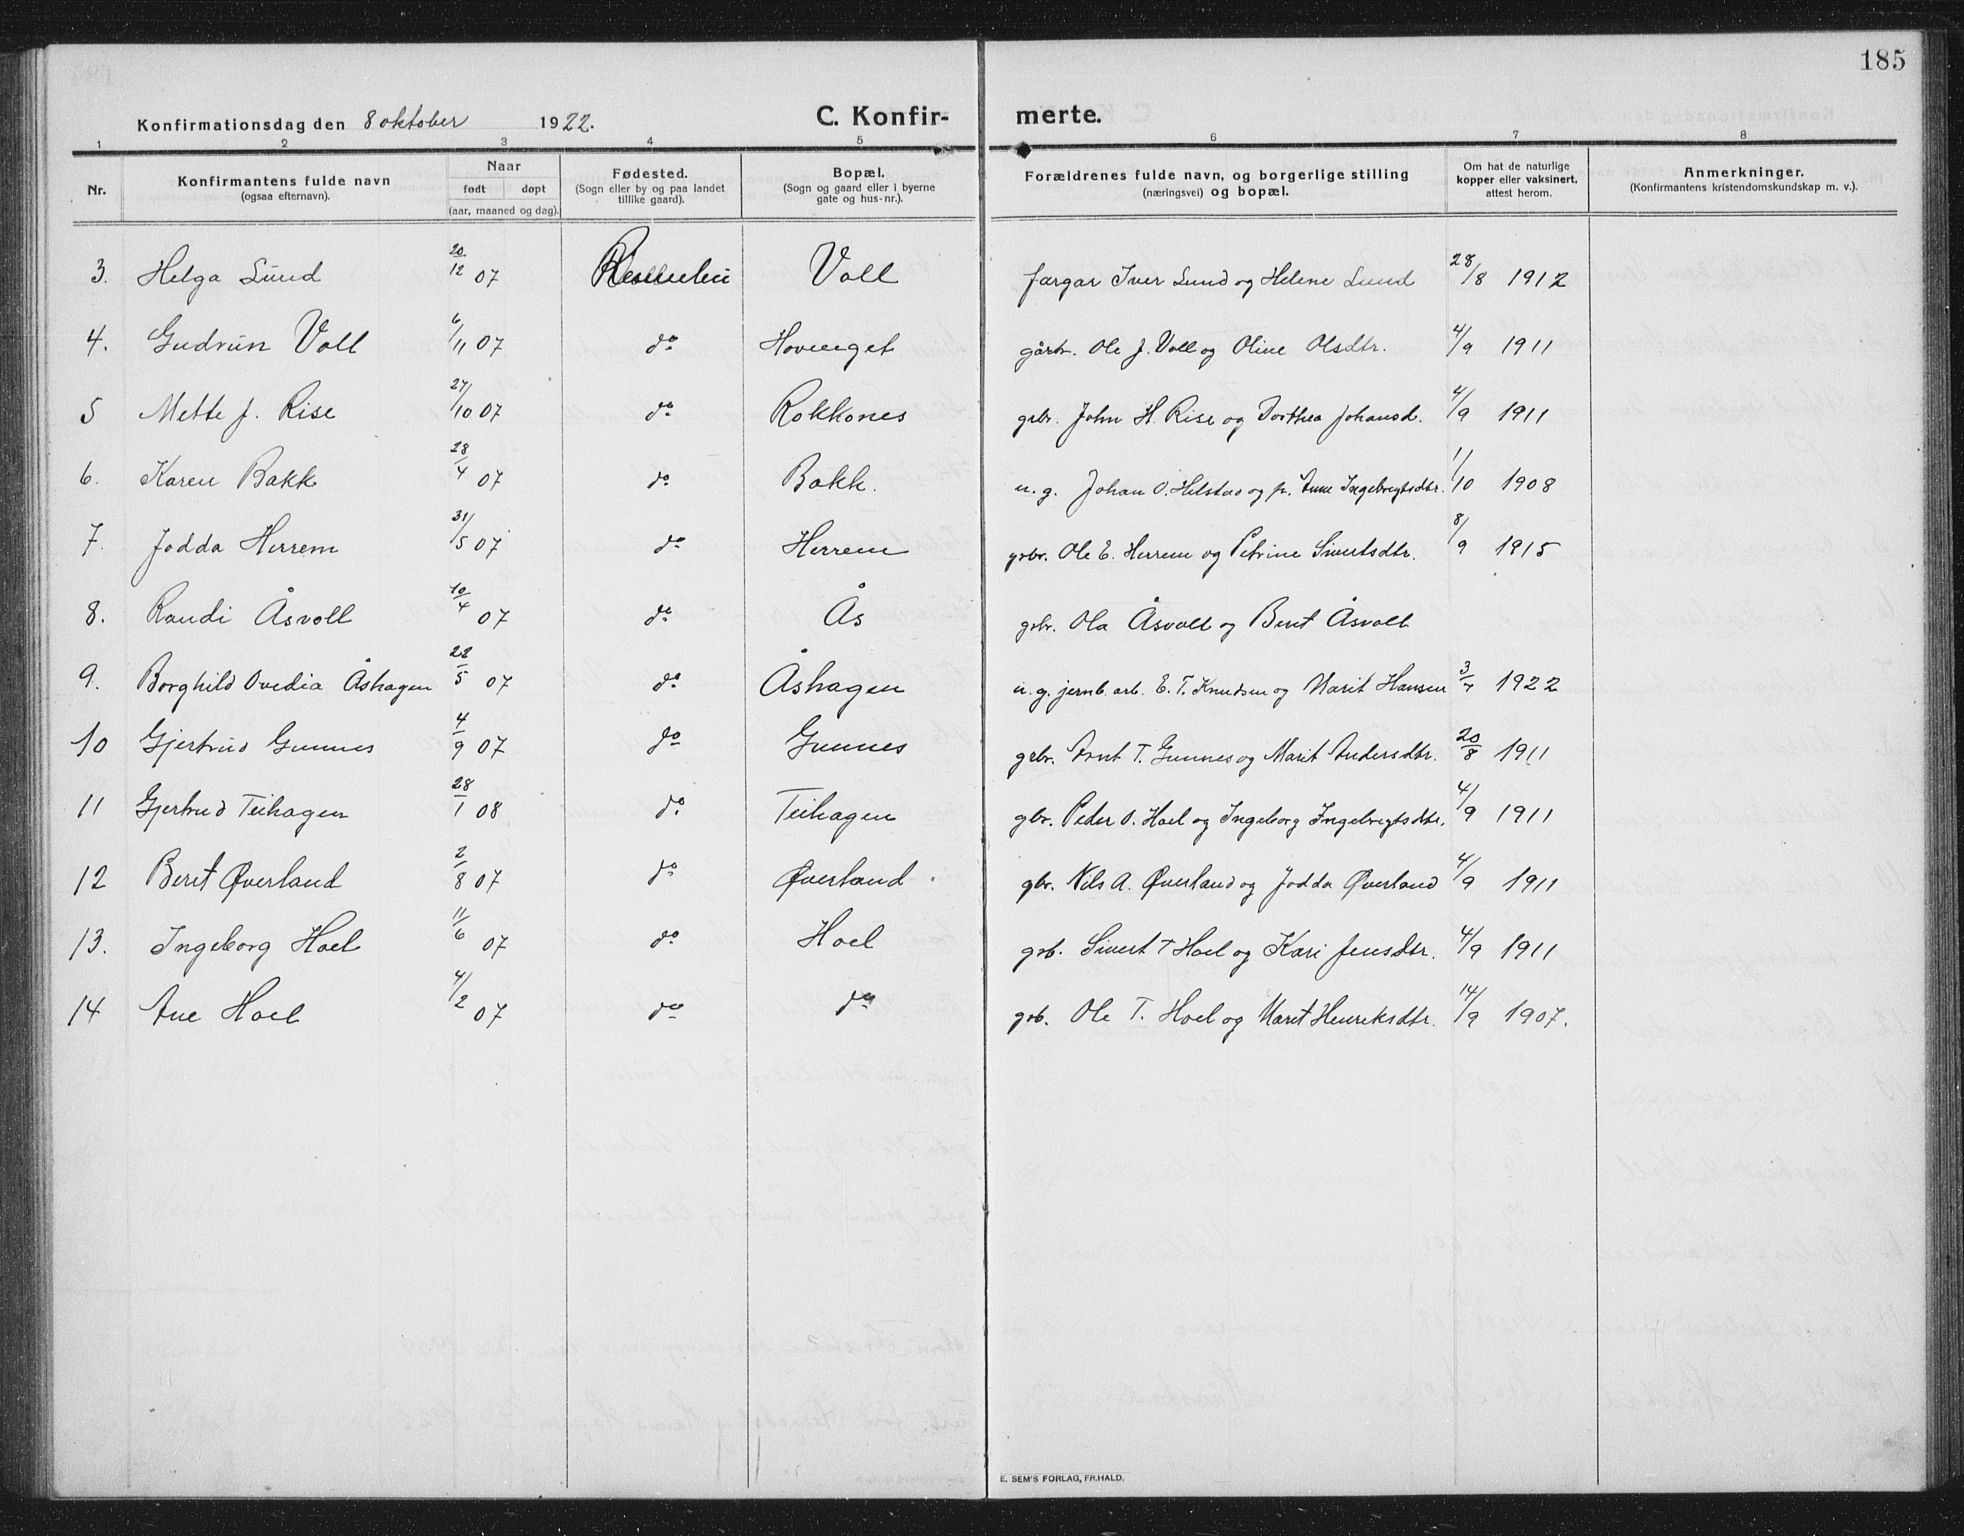 185
Konfirmationsdag den 8 oktober 1922. C. Konfir- merte.
1 2 3 4 5 6 7 8
Nr. Konfirmantens fulde navn (ogsaa efternavn). Naar født døpt (aar, maaned og dag). Fødested. (Sogn eller by og paa landet tillike gaard). Bopæl. (Sogn og gaard eller i byerne gate og hus-nr.). Forældrenes fulde navn, og borgerlige stilling (næringsvei) og bopæl. Om hat de naturlige kopper eller vaksinert, attest herom. Anmerkninger. (Konfirmantens kristendomskundskap m. v.).
3. Helga Lund 20/12 07 Voll færgar Iver Lund og Helene Lund 28/8 1912
4. Gudrun Voll 6/11 07 do Hovenget gårbr. Ole J. Voll og Oline Olsdtr. 4/9 1911
5 Mette J. Rise 27/10 07 do Rokkones grbr. John H. Rise og Dorthea Johansd. 4/9 1911
6. Karen Bakk 28/4 07 do Bakk. u. g. Johan O. Helstad og p. Ane Ingebregtsdtr. 1/10 1908
7. Jodda Herrem 31/5 07 do Herrem grbr. Ole E. Herrem og Petrine Sivertsdtr. 8/9 1915
8. Randi Åsvoll 10/4 07 do Ås grbr. Ola Åsvoll og Beret Åsvoll
9. Borghild Ovedia Åshagen 22/5 07 do Åshagen u. g. jernb. arb. E. T. Knudsen og Marit Hansen 3/7 1922
10 Gjertrud Gunnes 4/9 07 do Gunnes grbr. Arnt T. Gunnes og Marit Andersdtr. 20/8 1911
11 Gjertrud Teihagen 28/1 08 do Teihagen gbr. Peder O. Hoel og Ingeborg Ingebregtsdtr. 4/9 1911
12 Beret Øverland 2/8 07 do Øverland. gbr. Nils A. Øverland og Jodda Øverland 4/9 1911
13. Ingeborg Hoel 11/6 07 do Hoel grb. Sivert T Hoel og Kari Jensdtr. 4/9 1911
14 Ane Hoel 4/2 07 do do grb. Ole T. Hoel og Marit Henriksdtr. 14/9 1907.
E. SEM'S FORLAG, FR.HALD.